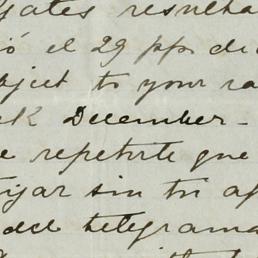 Yates resulta
ó el 29 ppo di
bject to your ra
ck December -
e repetirte que
tijar sin tu ap
del telegrama